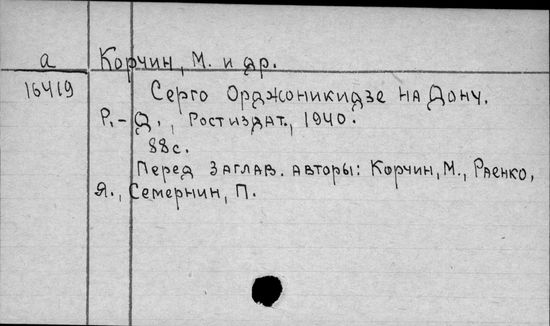 а Корчин, М. и др.
16419 Серго Орджоникидзе на Дону.
Р.-Д., Ростиздат., 1940.
88с.
Перед заглав. авторы: Корчин, М., Раенко,
Я., Семернин, П.